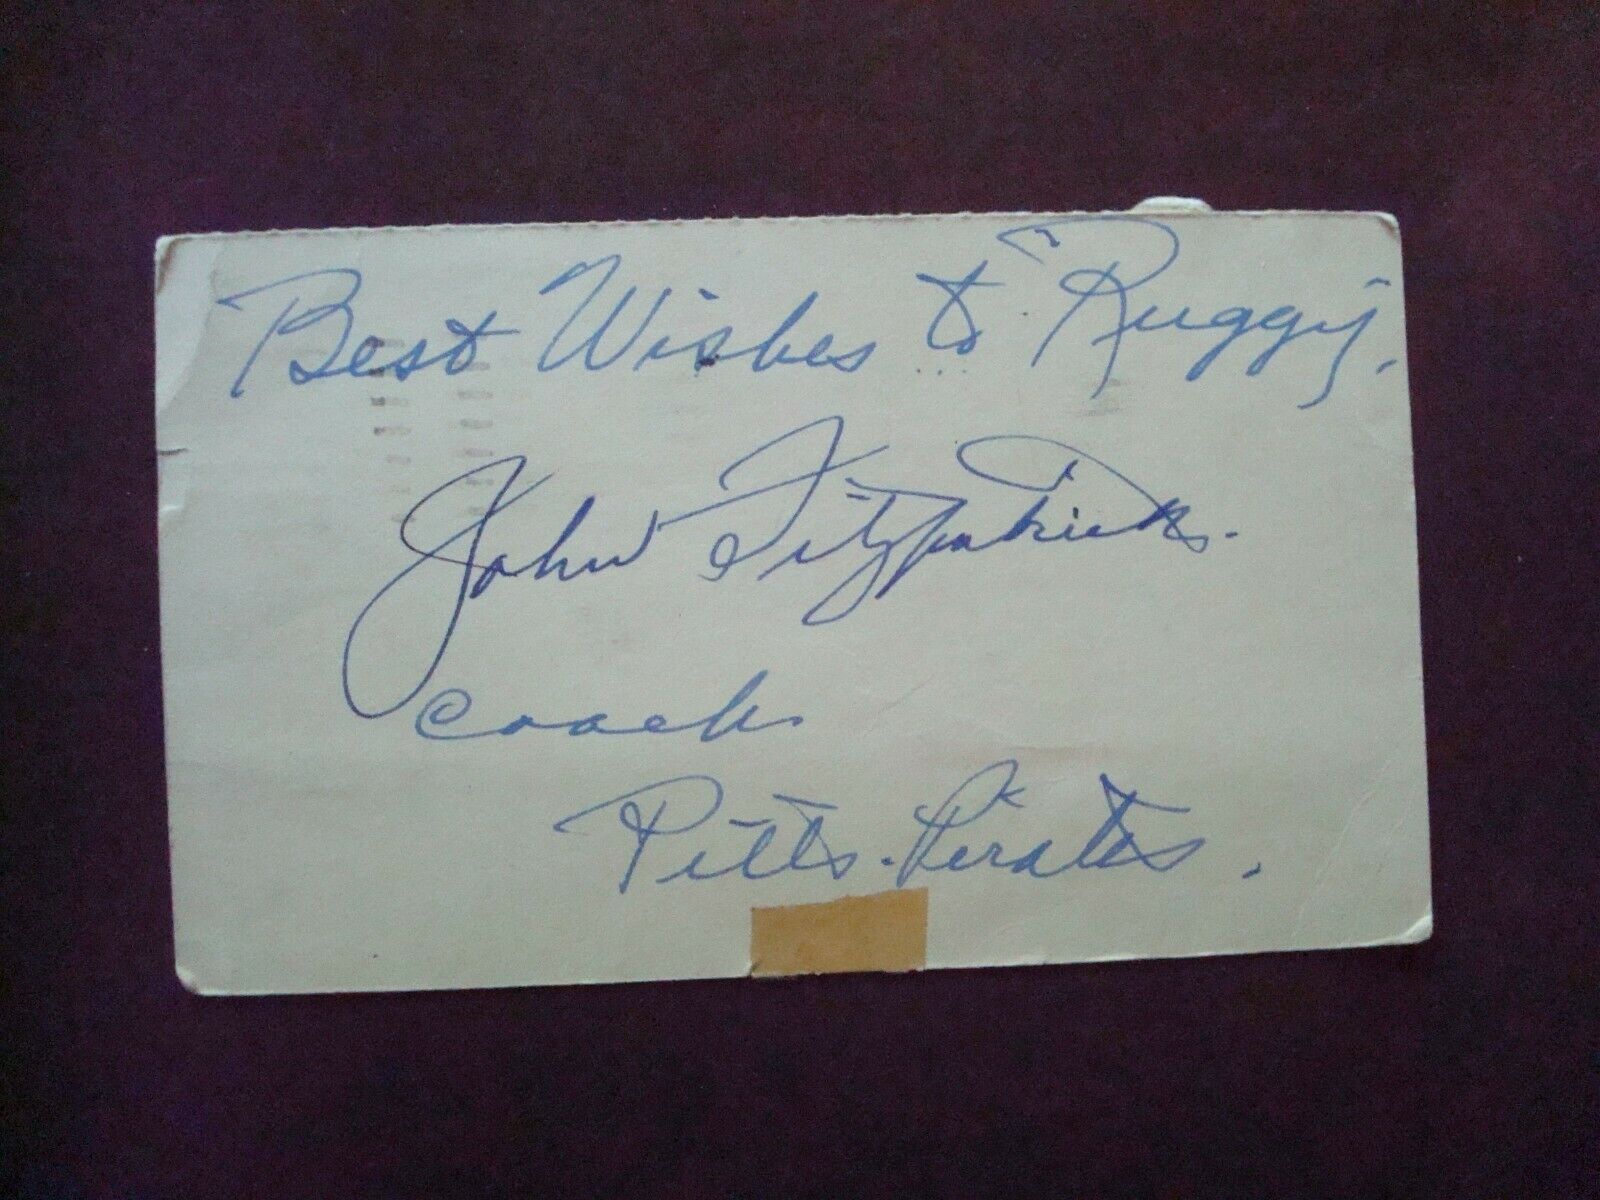 Best Wishes to "Ruggy".
John Fitzpatrick.
Coach
Pitts. Pirates.